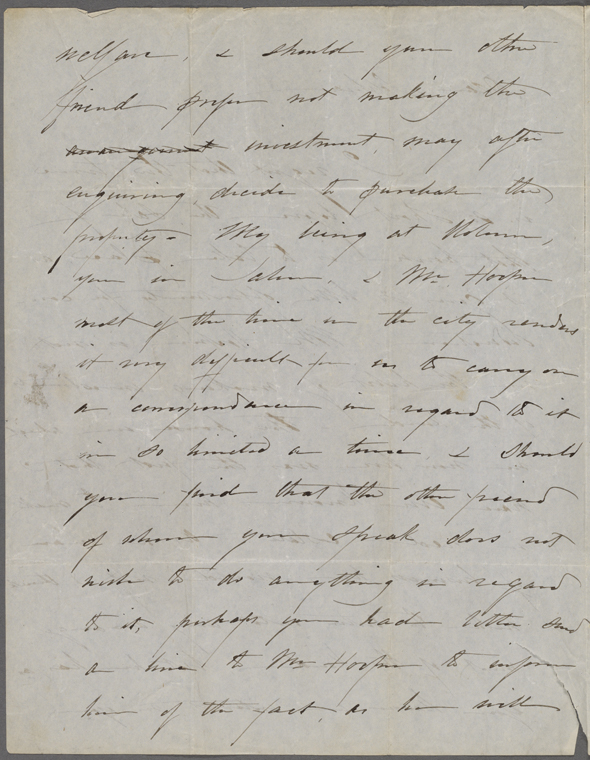 welfare, & should your other
friend prefer not making the
arrangement investment, may after
enquiring, decide to purchase the
property - My being at Woburn,
you in Salem, & Mr Hooper
most of the time in the city renders
it very difficult for us to carry on
a correspondence in regard to it
in so limited a time & should
you find that the other friend
of whom you speak does not
wish to do anything in regard
to it, perhaps you had better send
a line to Mr Hooper to inform
him of the fact, as he will